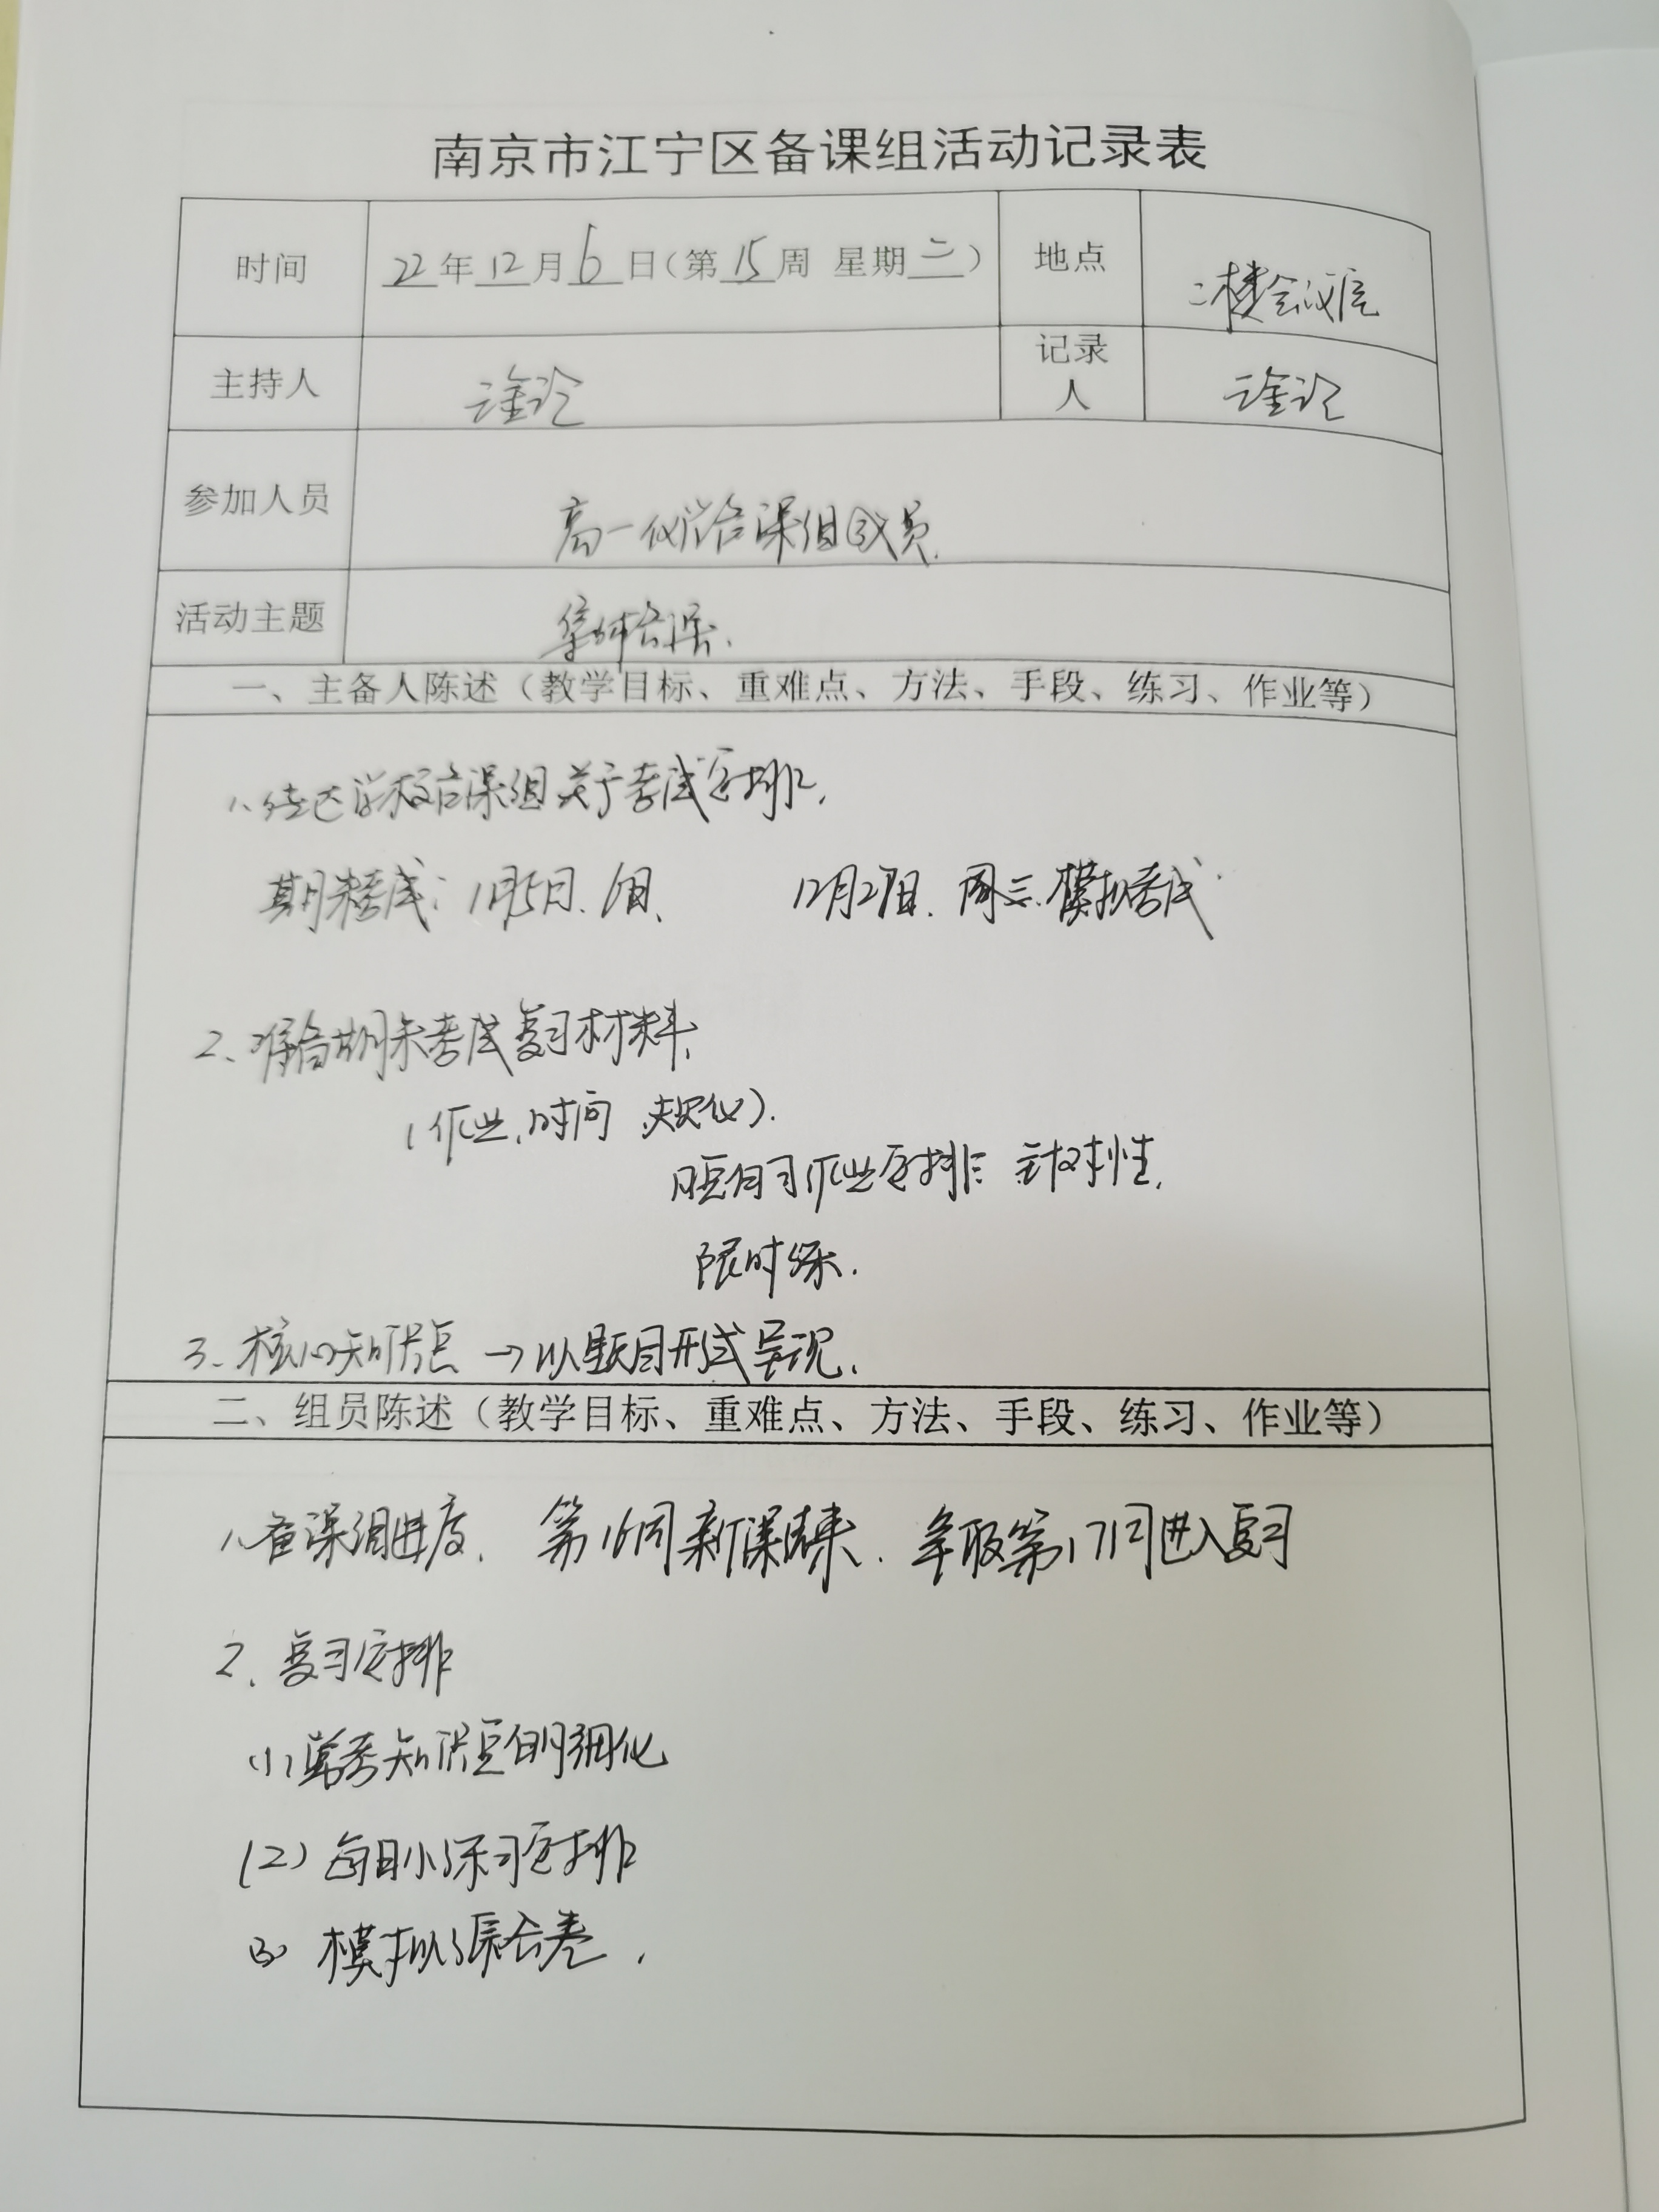 南京市江宁区备课组活动记录表
时间 22年12月6日(第15周 星期二) 地点 二楼会议室
主持人 记录人
参加人员 高一 备课组成员.
活动主题 集体备课.
一、主备人陈述（教学目标、重难点、方法、手段、练习、作业等）
1、传达学校备课组关于考试安排,
期末考试: 1月5日、6日、 12月27日、周三、模拟考试
2、准备期末考试复习材料、
(作业、时间、
作业安排 针对性,
限时练.
3、核心知识点 → 以题目形式呈现.
二、组员陈述（教学目标、重难点、方法、手段、练习、作业等）
1、备课组进度、 第16周新课结束. 争取第17周进入复习
2、复习安排
(1) 知识点的细化
(2) 每日小练习安排
(3) 模拟综合卷.